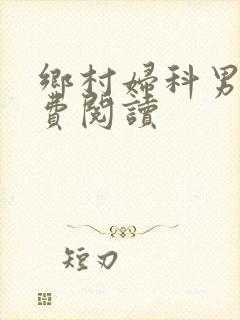 鄉村婦科男
費閱讀
短刃